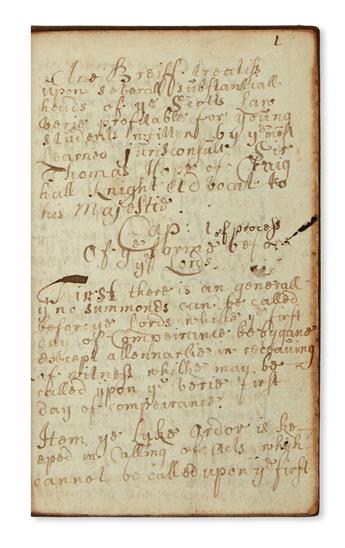 1
Ane Breiff treatise
upon severall substantiall
heads of ye Scots Law
verie profitable for young
students written by ye most
Learned Jurisconsult Sir
Thomas Hope of Craig
hall Knight Advocat to
his Majestie.
Cap: 1 of process
Of ye forme befo
ye Lords
First there is an generall
y no summonds can be called
befor ye Lords whille ye first
day of Compeirance be bygane
except allennarlie in receaving
of witness whilke may be
called upon ye verie first
day of compeirance.
Item ye Lyke ordor is ke
eped in calling of acts which
cannot be called upon ye first